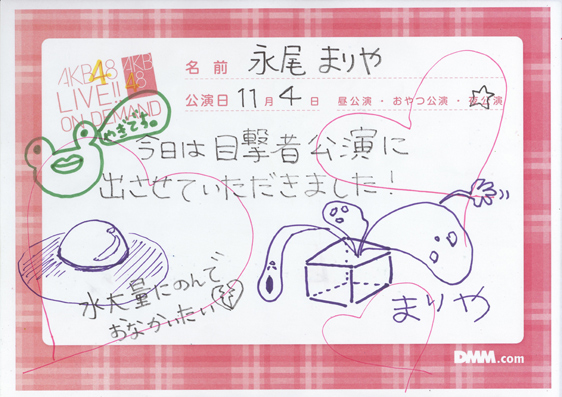 AKB48
LIVE!!
ON DEMAND
AKB
48
名前 永尾まりや
公演日 11月4日 昼公演・おやつ公演・夜公演
やぎです。
今日は目撃者公演に
出させていただきました!
水大量にのんで
おなかいたい
まりや
DMM.com